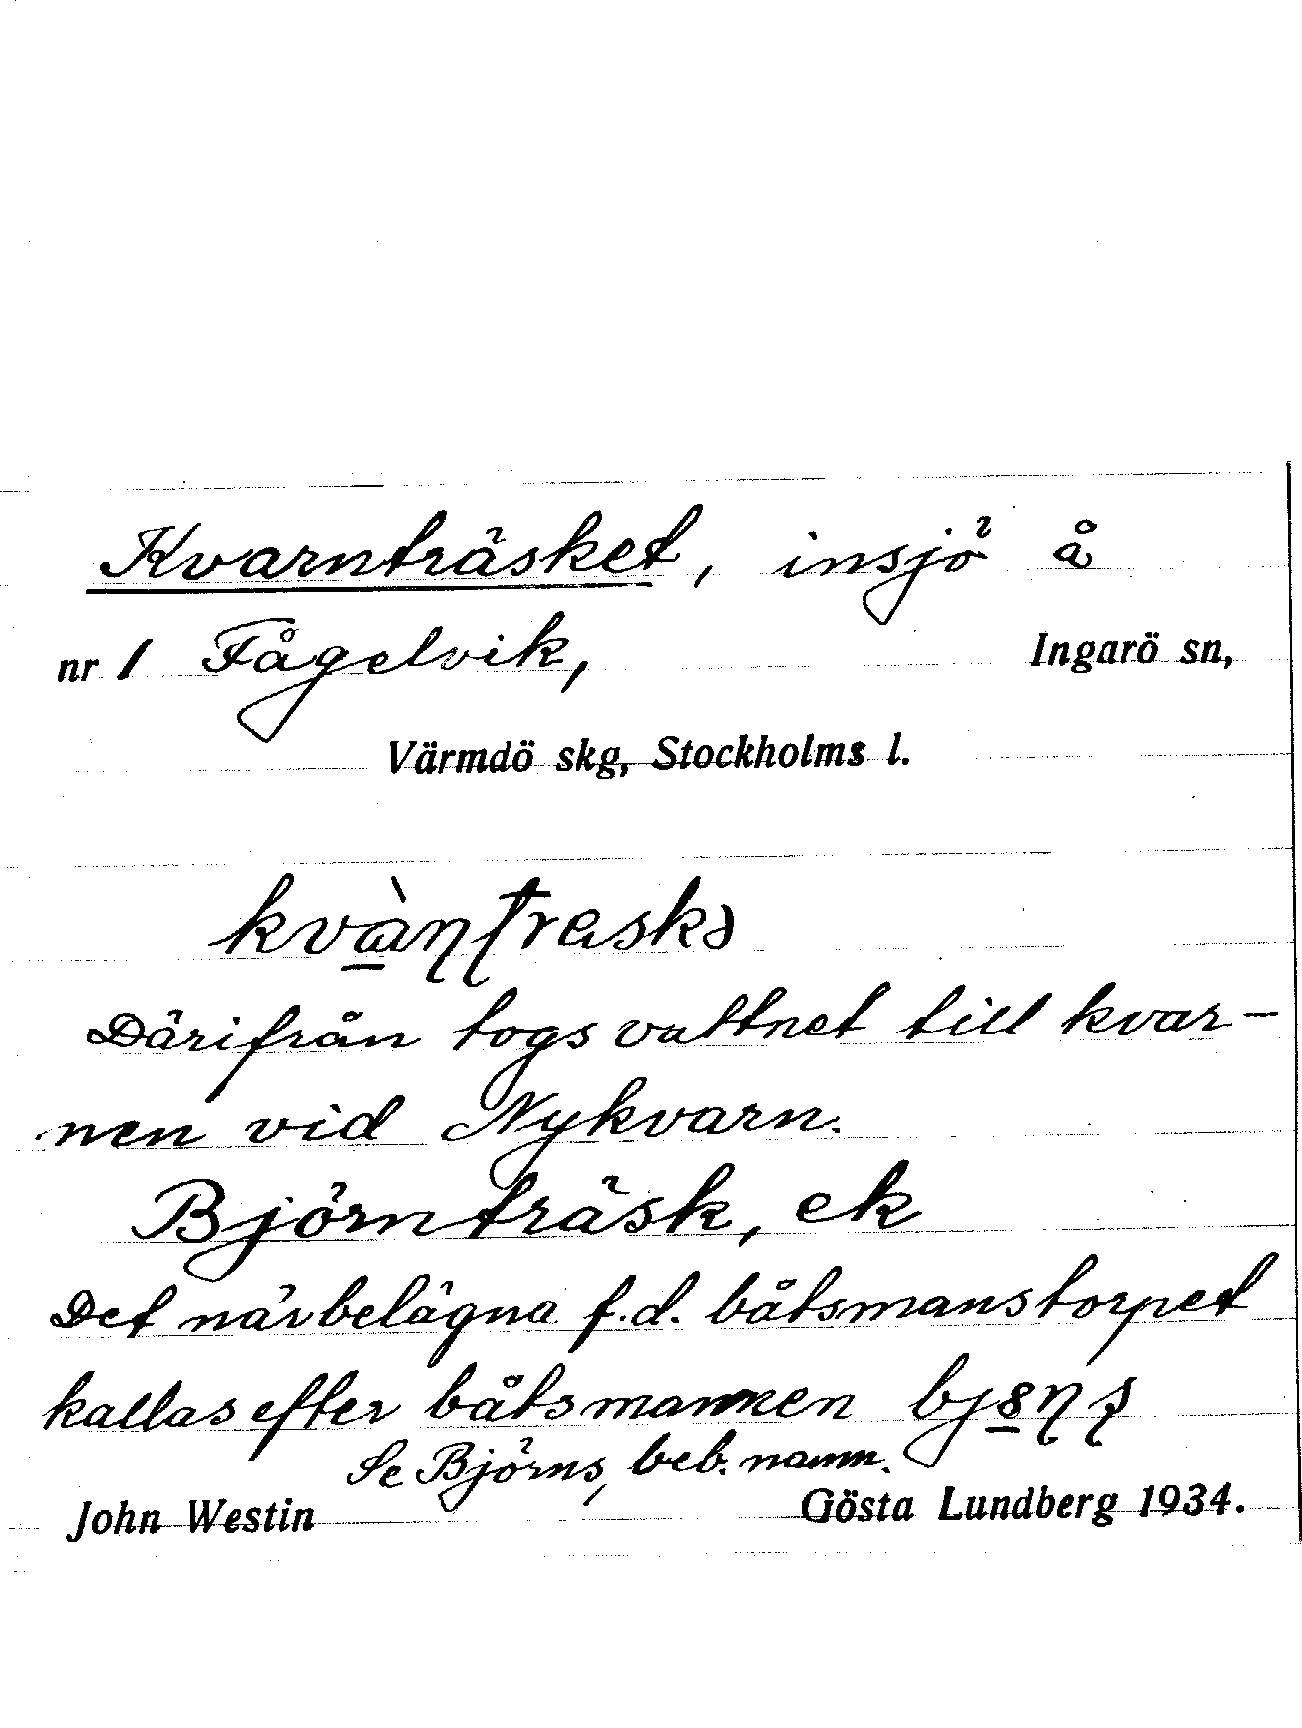 Kvarnträsket, insjö å
nr 1 Fågelvik, Ingarö sn,
Värmdö skg, Stockholms l.
kvàɳʈraskə
Därifrån togs vattnet till kvar-
nen vid Nykvarn.
Björnträsk, ek
Det närbelägna f.d. båtsmanstorpet
kallas efter båtsmannen
Se Björns, beb. namn.
John Westin Gösta Lundberg 1934.